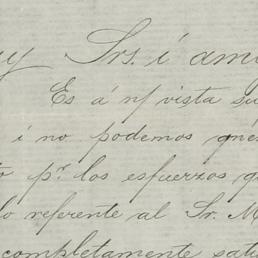 y Srs. i ami
Es á n/ vista su
i no podemos
o pr. los esfuerzos q
lo referente al Sr. M
completamente sati